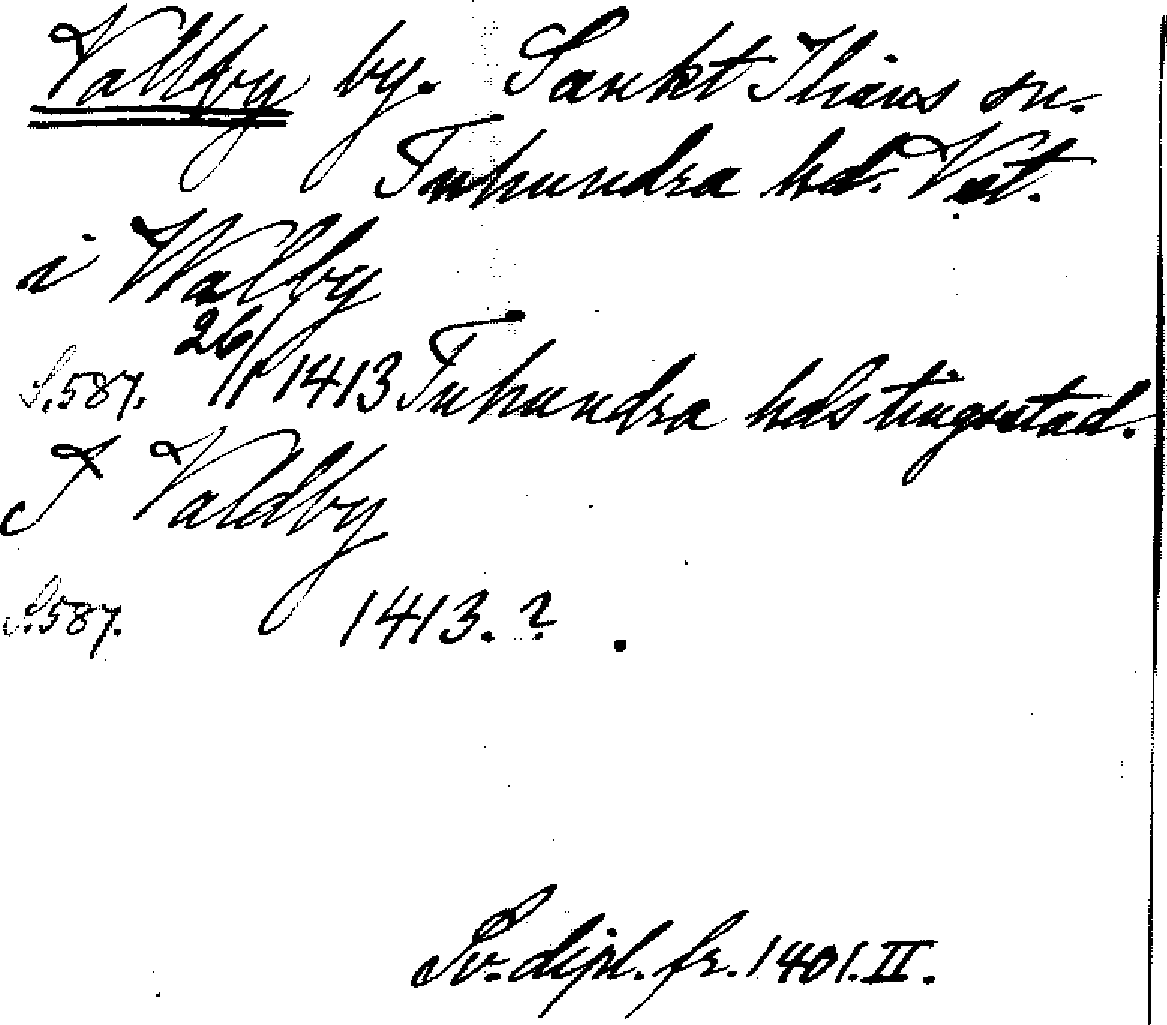 Vallby by. Sankt Ilians sn.
Tuhundra hd. Vst.
i Walby
S. 587. 26/11 1413 Tuhundra hds tingsstad.
I Valdby
S. 587. 1413. ?
Sv. dipl. fr. 1401. II.